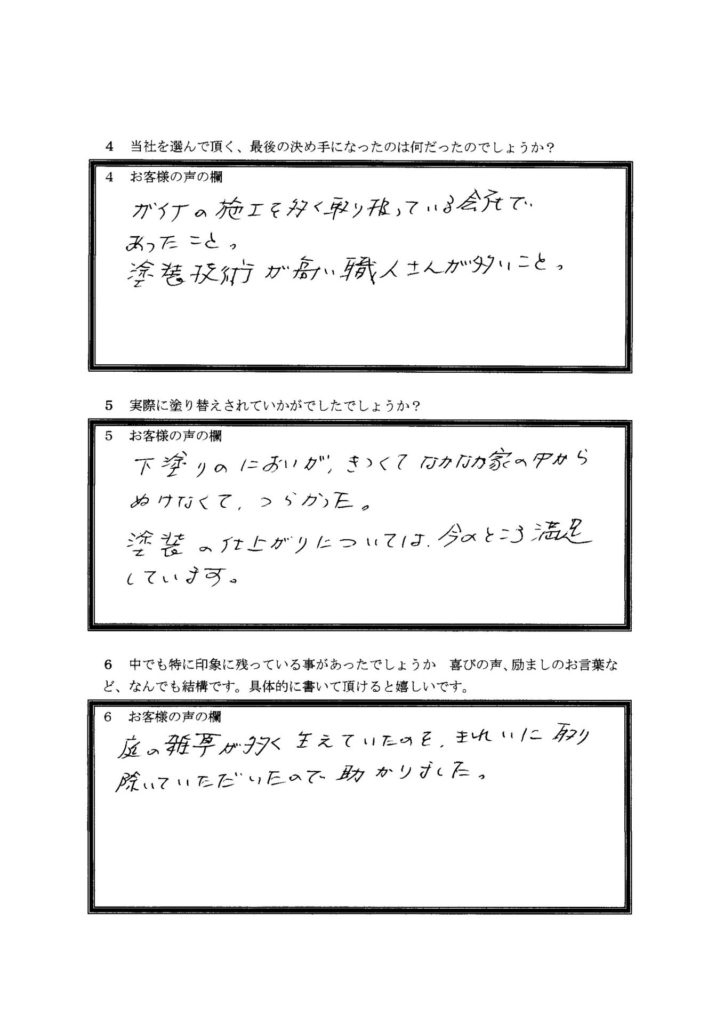 4 当社を選んで頂く、最後の決め手になったのは何だったのでしょうか？
4 お客様の声の欄
ガイナの施工を多く取り扱っている会社で
あったこと。
塗装技術が高い職人さんが多いこと。
5 実際に塗り替えされていかがでしたでしょうか？
5 お客様の声の欄
下塗りのにおいが、きつくてなかなか家の中から
ぬけなくて、つらかった。
塗装の仕上がりについては、今のところ満足
しています。
6 中でも特に印象に残っている事があったでしょうか 喜びの声、励ましのお言葉な
ど、なんでも結構です。具体的に書いて頂けると嬉しいです。
6 お客様の声の欄
庭の雑草が多く生えていたのを、きれいに取り
除いていただいたので助かりました。